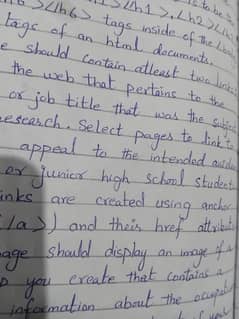 ></h6> tags inside of the
tags of an html documents.
e should contain atleast two links
the web that pertains to the
or job title that was the subject
research. Select pages to link to
appeal to the intended
or junior high school student
inks are created using anchor
</a>) and their href attribute
age should display an image if a
you create that contains a
information about the